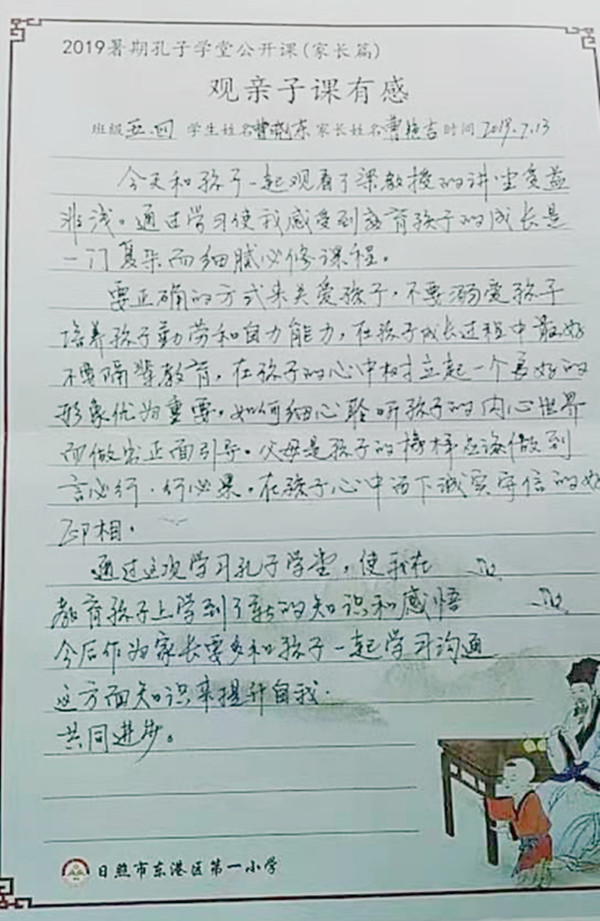 2019暑期孔子学堂公开课(家长篇)
观亲子课有感
班级 五.四 学生姓名 家长姓名 时间 2019.7.13
今天和孩子一起观看了梁教授的讲堂受益
非浅。通过学习使我感受到教育孩子的成长是
一门复杂而细腻必修课程。
要正确的方式来关爱孩子,不要溺爱孩子
培养孩子勤劳和自力能力,在孩子成长过程中最好
不要隔辈教育,在孩子的心中树立起一个良好的
形象优为重要,如何细心聆听孩子的内心世界
而做出正面引导。父母是孩子的榜样应该做到
言必行.行必果。在孩子心中留下诚实守信的好
印相.
通过这次学习孔子学堂,使我在
教育孩子上学到了新的知识和感悟
今后作为家长要多和孩子一起学习沟通
这方面知识来提升自我.
共同进步。
日照市东港区第一小学